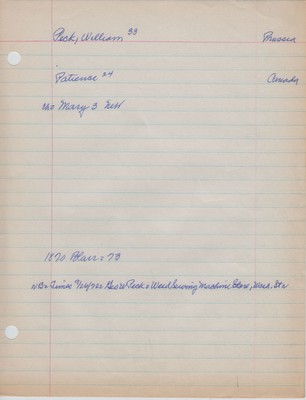 Peck, William 33 Prussia
Patience 24 Canada
cho Mary 3 Neb
1870 Blair = 73
NB= Times 9/26/72= Geo W Peck = Weed Sewing Machine Store, Wash. St=